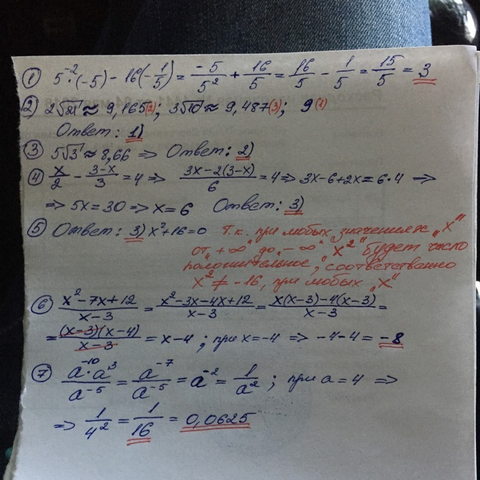 ① 5^-2·(-5) - 16(-1/5) = -5/5^2 + 16/5 = 16/5 - 1/5 = 15/5 = 3
2) 2√21 ≈ 9,165(2); 3√10 ≈ 9,487(3); 9(1)
Ответ: 1)
③ 5√3 ≈ 8,66 => Ответ: 2)
④ x/2 - (3-x)/3 = 4 => (3x-2(3-x))/6 = 4 => 3x-6+2x=6·4 =>
=> 5x=30 => x=6 Ответ: 3)
⑤ Ответ: 3) x²+16=0 Т.к. при любых значениях „x"
от „+∞" до „-∞" „x²" будет число
положительное, соответственно
x² ≠ -16, при любых „x"
⑥ (x²-7x+12)/(x-3) = (x²-3x-4x+12)/(x-3) = (x(x-3)-4(x-3))/(x-3) =
= ((x-3)(x-4))/(x-3) = x-4; при x=-4 => -4-4=-8
⑦ (a^-10·a^3)/a^-5 = a^-7/a^-5 = a^-2 = 1/a²; при a=4 =>
=> 1/4² = 1/16 = 0,0625